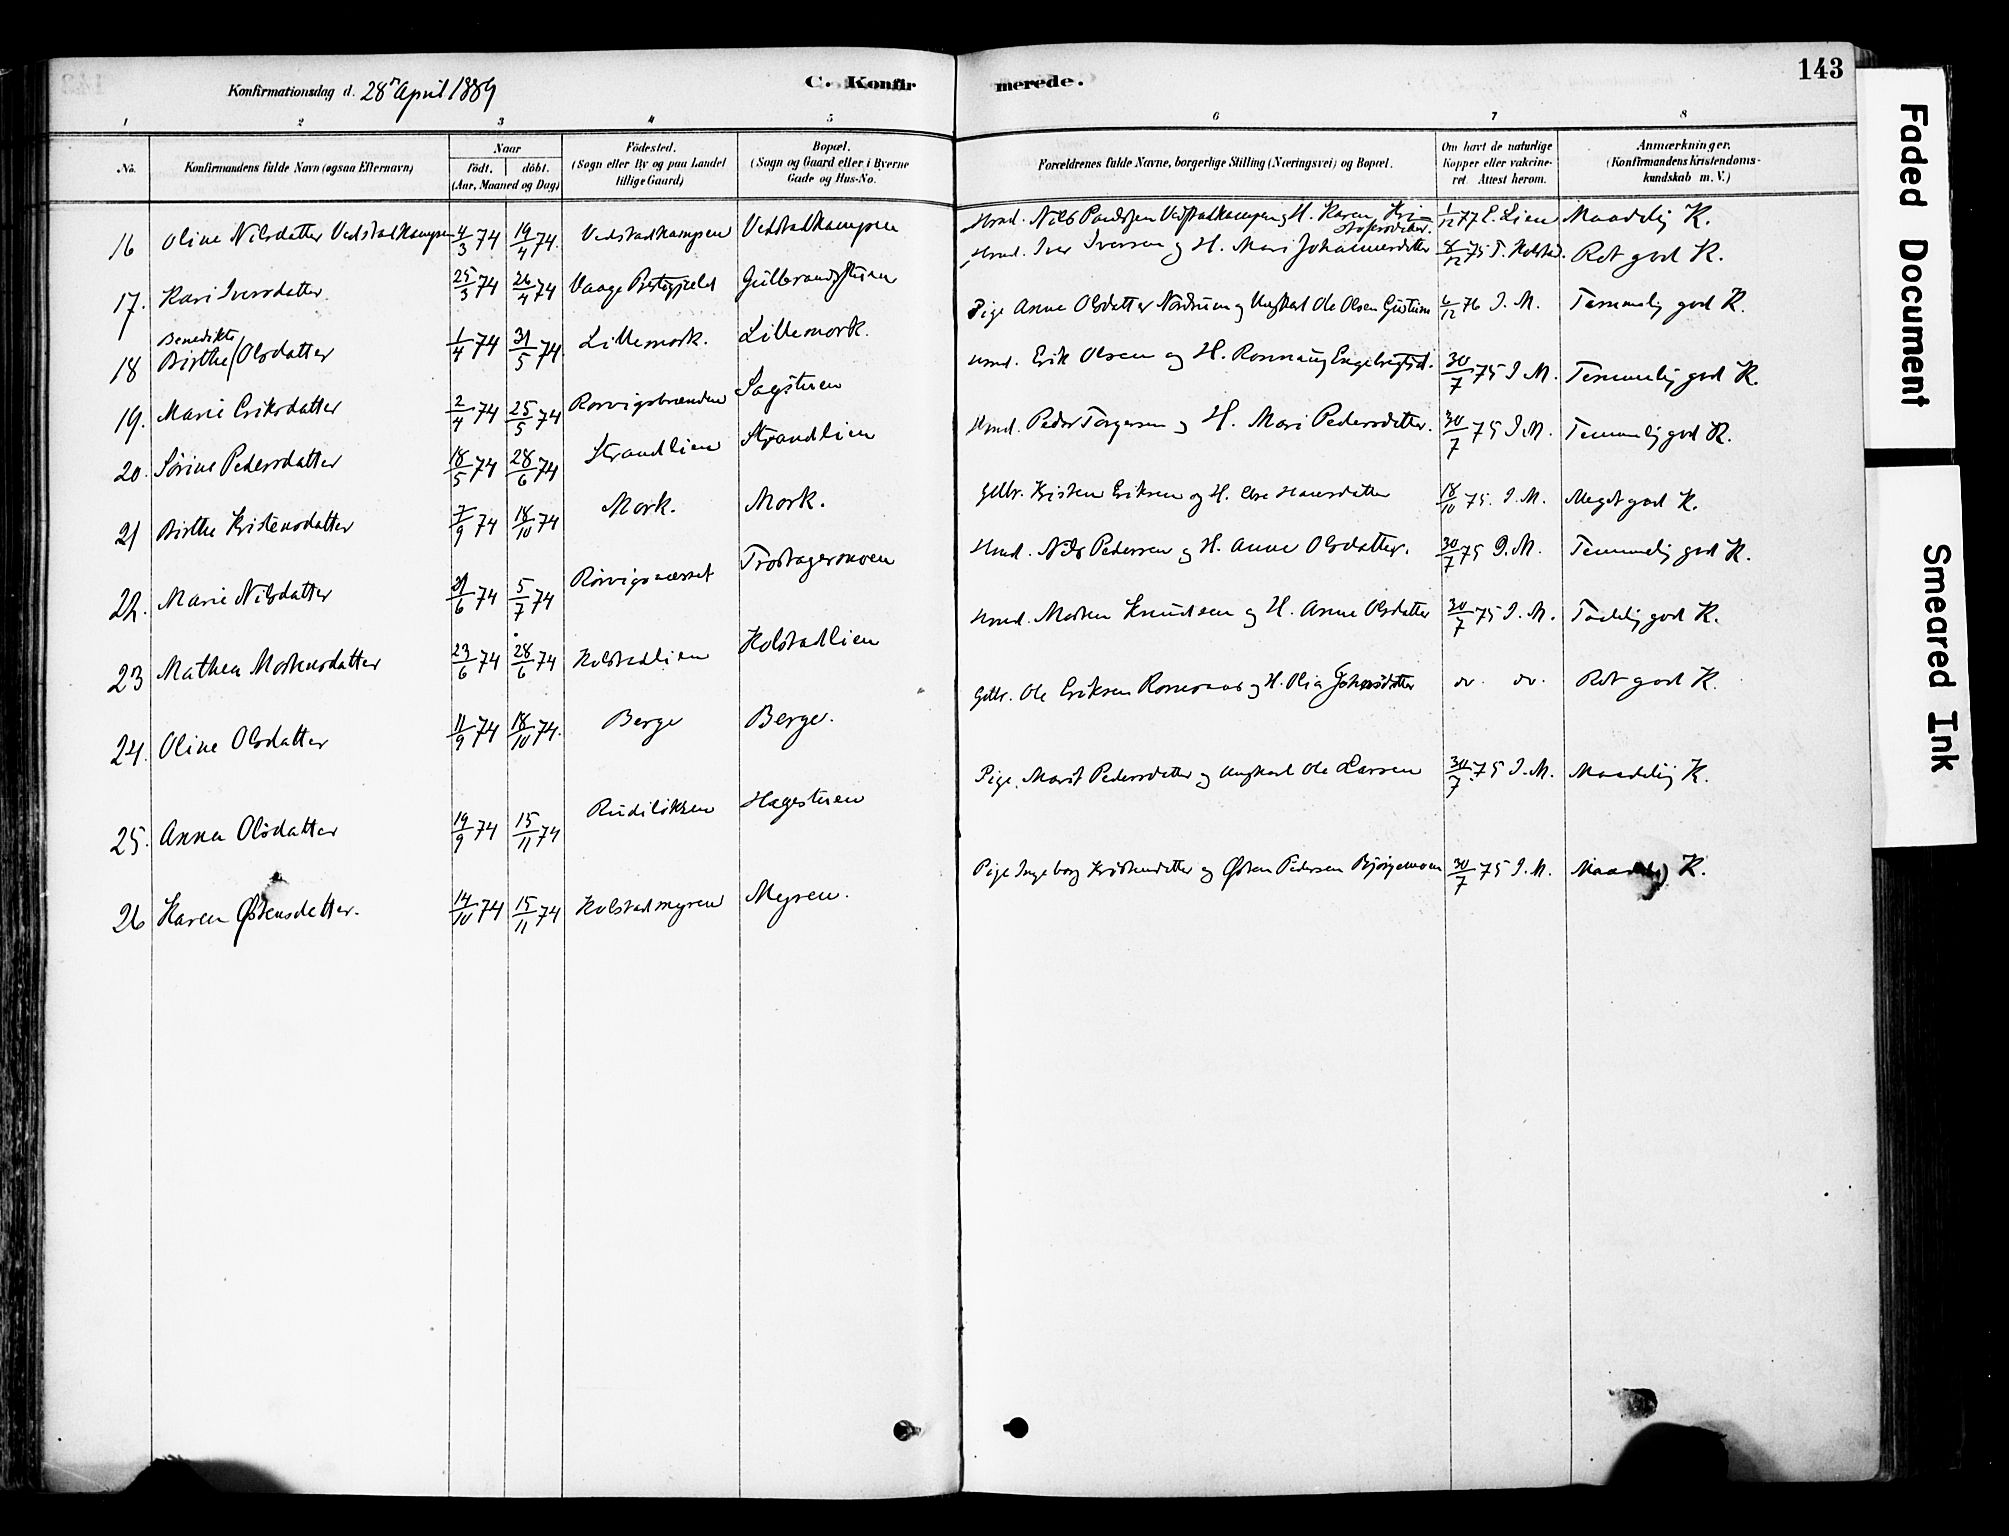 Konfirmationsdag d. 28de April 1889
C. Konfirmerede.
143
1 2 3 4 5 6 7 8
No. Konfirmandens fulde Navn (ogsaa Efternavn) Naar födt. döbt. (Aar, Maaned og Dag) Födested. (Sogn eller By og paa Landet tillige Gaard) Bopæl. (Sogn og Gaard eller i Byerne Gade og Hus-No. Forældrenes fulde Navne, borgerlige Stilling (Næringsvei) og Bopæl. Om havt de naturlige Kopper eller vakcineret. Attest herom. Anmærkninger. (Konfirmandens Kristendomskundskab m. V.)
16 Oline Nilsdatter Vedstadkampen 4/3 74 19/4 74. Vedstadkampen Vedstadkampen Hmd. Nils Paulssen Vedstadkampen og H. Karen Kristofersdatter. 1/12 77 E. Lien Maadelig K.
17. Kari Iversdatter 25/3 74 26/4 74 Vaage Prstegjæld Gulbrandsstuen Hmd. Iver Iversen og H. Mari Johannesdatter 8/12 75 T. Kolstad. Ret god K.
18 Birthe Benedikte Olsdatter 1/4 74 31/5 74. Lillemork. Lillemork. Pige Anne Olsdatter Nordrum og Ungkarl Ole Olsen 6/12 76 J. M. Temmelig god K.
19. Marie Eriksdatter 2/4 74 25/5 74 Rørvigsbrænden Sagstuen Hmd. Erik Olsen og H. Rønnaug Engebrigtsd. 30/7 75 J. M. Temmelig god K.
20. Sørine Pedersdatter 18/5 74 28/6 74 Strandlien Strandlien Hmd. Peder Torgersen og H. Mari Pedersdatter. 30/7 75 J. M. Temmelig god K.
21 Birthe Kristensdatter 7/9 74 18/10 74 Mork. Mork. Gdbr. Kristen Eriksen og H. Else Hansdatter 18/10 75. J. M. Meget god K.
22. Marie Nilsdatter 21/6 74 5/7 74 Rørvigsnæsset Trostagermoen Hmd. Nils Pedersen og H. Anne Olsdatter. 30/7 75 J. M. Temmelig god K.
23 Mathea Mortensdatter 23/6 74 28/6 74 Kolstadlien Kolstadlien Hmd. Morten Knudsen og H. Anne Olsdatter 30/7 75 J. M. god K.
24. Oline Olsdatter 11/9 74 18/10 74. Berge Berge. Gdbr. Ole Eriksen og H. Johnsdatter do. do. Ret god K.
25. Anna Olsdatter 19/9 74 15/11 74 Rudiløkken Hagestuen Pige. Marit Pedersdatter og Ungkarl Ole Larsen 30/7 75 J. M. Maadelig K.
26 Karen Østensdatter. 14/10 74 15/11 74 Kolstadmyren Myren. Pige Ingeborg Kristensdatter og Østen Pedersen Bjørgemoen 30/7 75 J. M. Maadelig K.
Faded Document
Smeared Ink